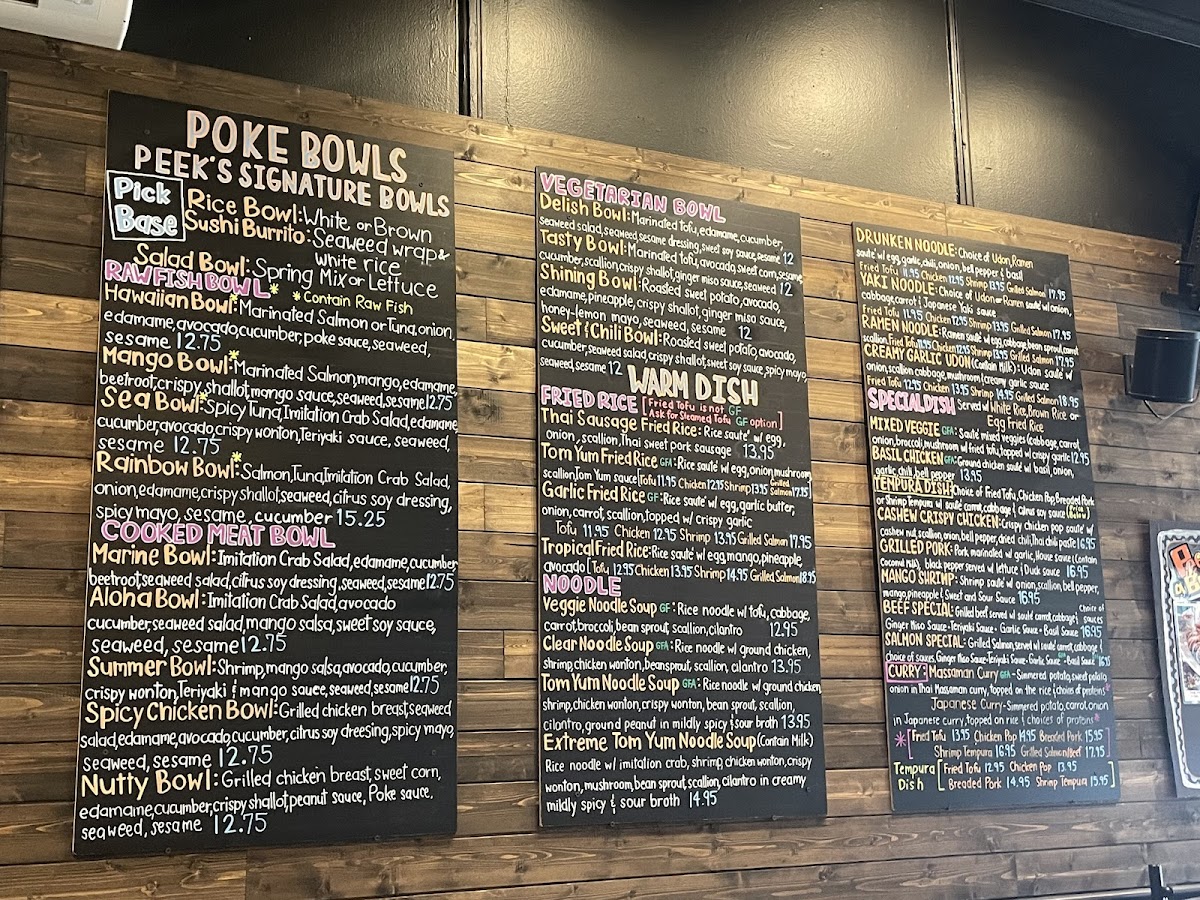 POKE BOWLS
PEEK'S SIGNATURE BOWLS
Pick Base
Rice Bowl: White or Brown
Sushi Burrito: Seaweed wrap &
white rice
Salad Bowl: Spring Mix or Lettuce
RAW FISH BOWL* *Contain Raw Fish
Hawaiian Bowl*: Marinated Salmon or Tuna, onion,
edamame, avocado, cucumber, poke sauce, seaweed,
sesame 12.75
Mango Bowl*: Marinated Salmon, mango, edamame,
beetroot, crispy shallot, mango sauce, seaweed, sesame 12.75
Sea Bowl*: Spicy Tuna, Imitation Crab Salad, edamame,
cucumber, avocado, crispy wonton, Teriyaki sauce, seaweed,
sesame 12.75
Rainbow Bowl*: Salmon, Tuna, Imitation Crab Salad,
onion, edamame, crispy shallot, seaweed, citrus soy dressing,
spicy mayo, sesame, cucumber 15.25
COOKED MEAT BOWL
Marine Bowl: Imitation Crab Salad, edamame, cucumber
beetroot, seaweed salad, citrus soy dressing, seaweed, sesame 12.75
Aloha Bowl: Imitation Crab Salad, avocado
cucumber, seaweed salad, mango salsa, sweet soy sauce,
seaweed, sesame 12.75
Summer Bowl: Shrimp, mango salsa, avocado, cucumber,
crispy wonton, Teriyaki & mango sauce, seaweed, sesame 12.75
Spicy Chicken Bowl: Grilled chicken breast, seaweed
salad, edamame, avocado, cucumber, citrus soy dreesing, spicy mayo,
seaweed, sesame 12.75
Nutty Bowl: Grilled chicken breast, sweet corn,
edamame, cucumber, crispy shallot, peanut sauce, Poke sauce,
seaweed, sesame 12.75
VEGETARIAN BOWL
Delish Bowl: Marinated tofu, edamame, cucumber,
seaweed salad, seaweed, sesame dressing, sweet soy sauce, sesame 12
Tasty Bowl: Marinated tofu, avocado, sweet corn, sesame,
cucumber, scallion, crispy shallot, ginger miso sauce, seaweed 12
Shining Bowl: Roasted sweet potato, avocado,
edamame, pineapple, crispy shallot, ginger miso sauce,
honey-lemon mayo, seaweed, sesame 12
Sweet & Chili Bowl: Roasted sweet potato, avocado,
cucumber, seaweed salad, crispy shallot, sweet soy sauce, spicy mayo,
seaweed, sesame 12
WARM DISH
FRIED RICE [Fried Tofu is not GF
Ask for Steamed Tofu GF option]
Thai Sausage Fried Rice: Rice saute' w/ egg,
onion, scallion, Thai sweet pork sausage 13.95
Tom Yum Fried Rice GFA: Rice saute' w/ egg, onion, mushroom,
scallion, Tom Yum sauce [Tofu 11.95 Chicken 12.95 Shrimp 13.95 Grilled Salmon 17.95]
Garlic Fried Rice GF: Rice saute' w/ egg, garlic butter,
onion, carrot, scallion, topped w/ crispy garlic
Tofu 11.95 Chicken 12.95 Shrimp 13.95 Grilled Salmon 17.95
Tropical Fried Rice: Rice saute' w/ egg, mango, pineapple,
avocado [Tofu 12.95 Chicken 13.95 Shrimp 14.95 Grilled Salmon 18.95
NOODLE
Veggie Noodle Soup GF: Rice noodle w/ tofu, cabbage,
carrot, broccoli, bean sprout, scallion, cilantro 12.95
Clear Noodle Soup GFA: Rice noodle w/ ground chicken,
shrimp, chicken wonton, beansprout, scallion, cilantro 13.95
Tom Yum Noodle Soup GFA: Rice noodle w/ ground chicken,
shrimp, chicken wonton, crispy wonton, bean sprout, scallion,
cilantro, ground peanut in mildly spicy & sour broth 13.95
Extreme Tom Yum Noodle Soup (Contain Milk)
Rice noodle w/ imitation crab, shrimp, chicken wonton, crispy
wonton, mushroom, bean sprout, scallion, cilantro in creamy
mildly spicy & sour broth 14.95
DRUNKEN NOODLE: Choice of Udon, Ramen
saute' w/ egg, garlic, chili, onion, bell pepper & basil
Fried Tofu 11.95 Chicken 12.95 Shrimp 13.95 Grilled Salmon 17.95
YAKI NOODLE: Choice of Udon or Ramen saute' w/ onion,
cabbage, carrot & Japanese Yaki sauce
Fried Tofu 11.95 Chicken 12.95 Shrimp 13.95 Grilled Salmon 17.95
RAMEN NOODLE: Ramen saute' w/ egg, cabbage, bean sprout, carrot
scallion, Fried Tofu 11.95 Chicken 12.95 Shrimp 13.95 Grilled Salmon 17.95
CREAMY GARLIC UDON (Contain Milk): Udon saute' w/
onion, scallion, cabbage, mushroom & creamy garlic sauce
Fried Tofu 12.95 Chicken 13.95 Shrimp 14.95 Grilled Salmon 18.95
SPECIAL DISH Served w/ White Rice, Brown Rice or
Egg Fried Rice
MIXED VEGGIE GFA: Saute' mixed veggies (cabbage, carrot,
onion, broccoli, mushroom w/ fried tofu, topped w/ crispy garlic 12.95
BASIL CHICKEN GFA: Ground chicken saute' w/ basil, onion,
garlic, chili, bell pepper 13.95
TEMPURA DISH: Choice of Fried Tofu, Chicken Pop, Breaded Pork
or Shrimp Tempura w/ saute' carrot, cabbage & citrus soy sauce
CASHEW CRISPY CHICKEN: Crispy chicken pop saute' w/
cashew nut, scallion, onion, bell pepper, dried chili, Thai chili paste 16.95
GRILLED PORK: Pork marinated w/ garlic, House sauce (Contain
Coconut Milk), black pepper served w/ lettuce & Duck sauce 16.95
MANGO SHRIMP: Shrimp saute' w/ onion, scallion, bell pepper,
mango, pineapple & Sweet and Sour Sauce 16.95
BEEF SPECIAL: Grilled beef served w/ saute' carrot, cabbage & Choice of sauces
Ginger Miso Sauce · Teriyaki Sauce · Garlic Sauce · Basil Sauce 16.95
SALMON SPECIAL: Grilled Salmon, served w/ saute' carrot, cabbage &
choice of sauces, Ginger Miso Sauce · Teriyaki Sauce · Garlic Sauce · Basil Sauce 16.95
CURRY: Massaman Curry GFA - Simmered potato, sweet potato,
onion in Thai Massaman curry, topped on the rice & choices of proteins*
Japanese Curry - Simmered potato, carrot, onion
in Japanese curry, topped on rice & choices of proteins*
* [Fried Tofu 13.95 Chicken Pop 14.95 Breaded Pork 15.95
Shrimp Tempura 16.95 Grilled Salmon/Beef 17.95]
Tempura Dish [Fried Tofu 12.95 Chicken Pop 13.95
Breaded Pork 14.95 Shrimp Tempura 15.95]